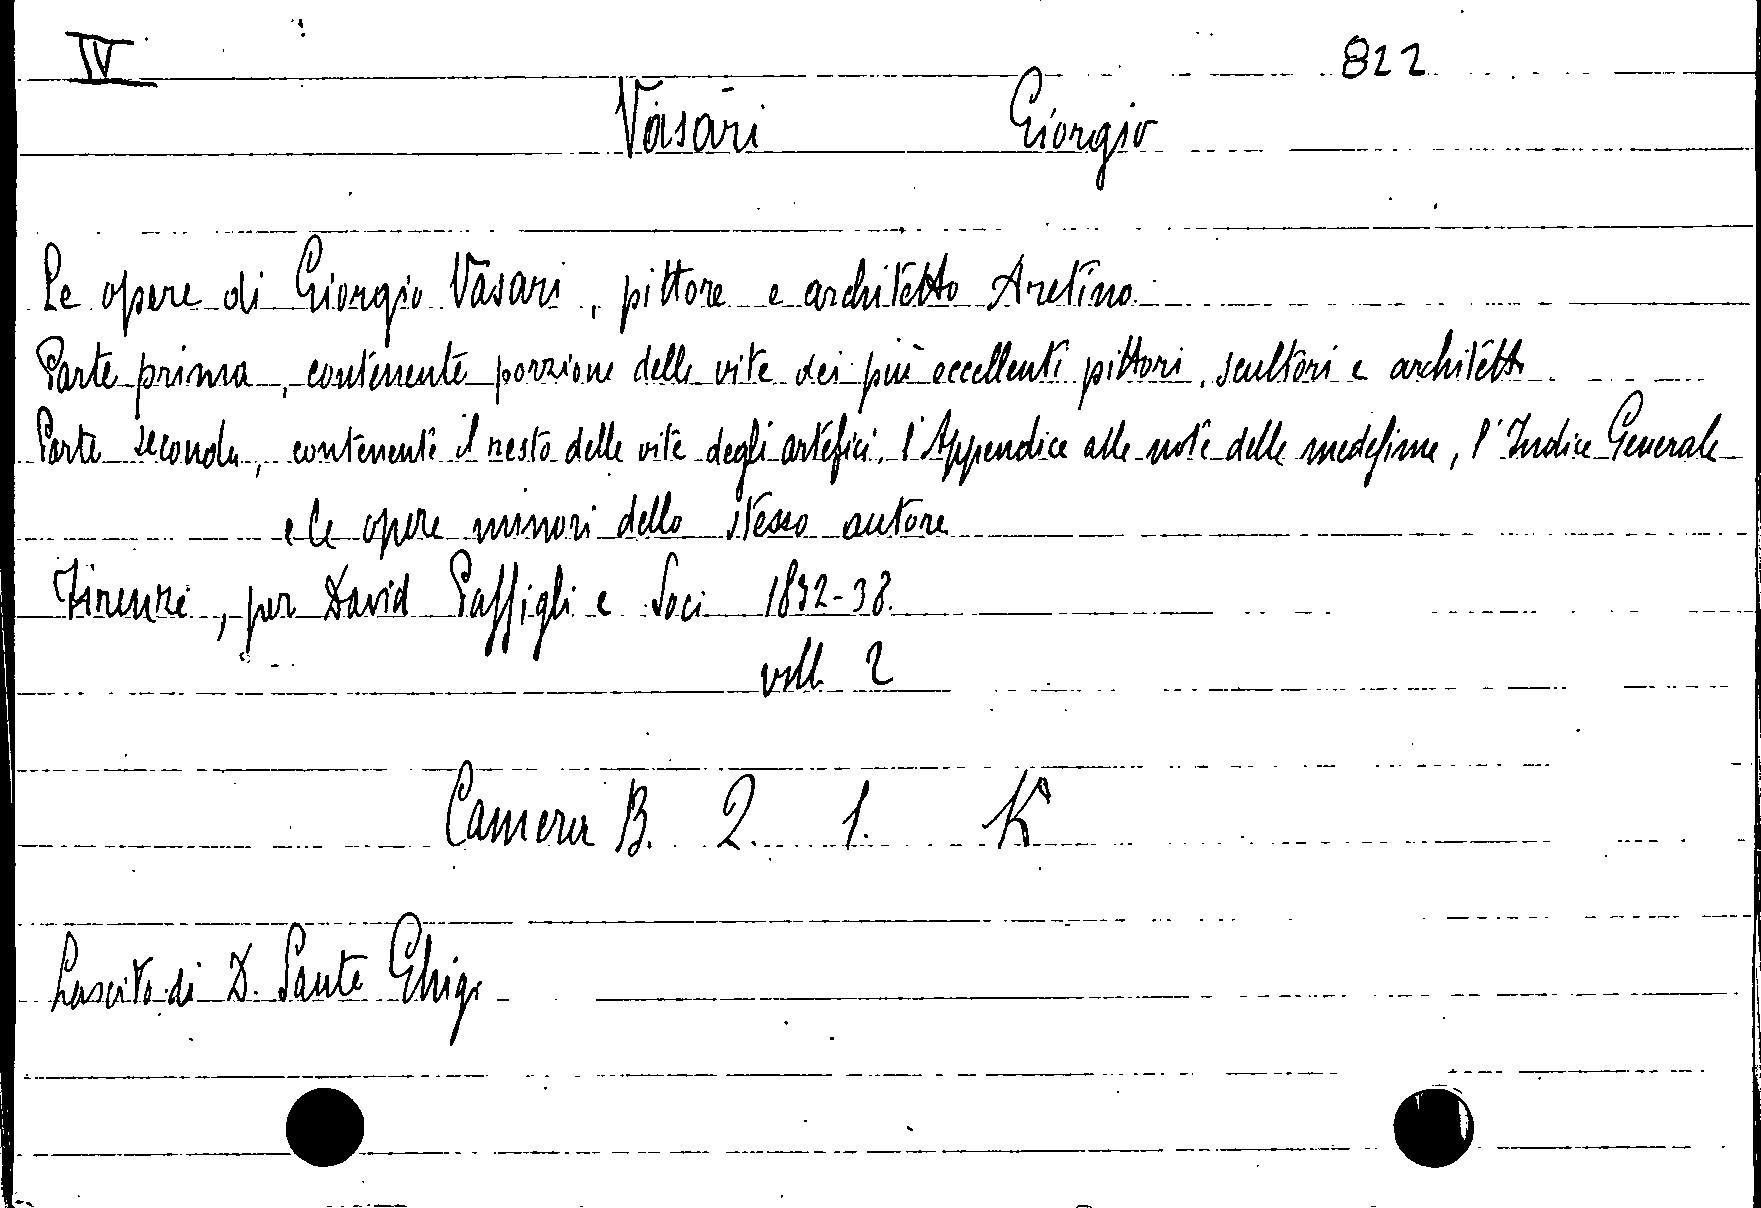 IV 822
Vasari Giorgio
Le opere di Giorgio Vasari, pittore e architetto Aretino.
Parte prima, contenente porzione delle vite dei più eccellenti pittori, scultori e architetti
Parte seconda, contenente il resto delle vite degli artefici, l'Appendice alle note delle medesime, l'Indice Generale
e le opere minori dello stesso autore
Firenze, per David Passigli e Soci 1832-38.
voll. 2
Camera B. 2. 1. K
Lascito di D. Sante Ghigi